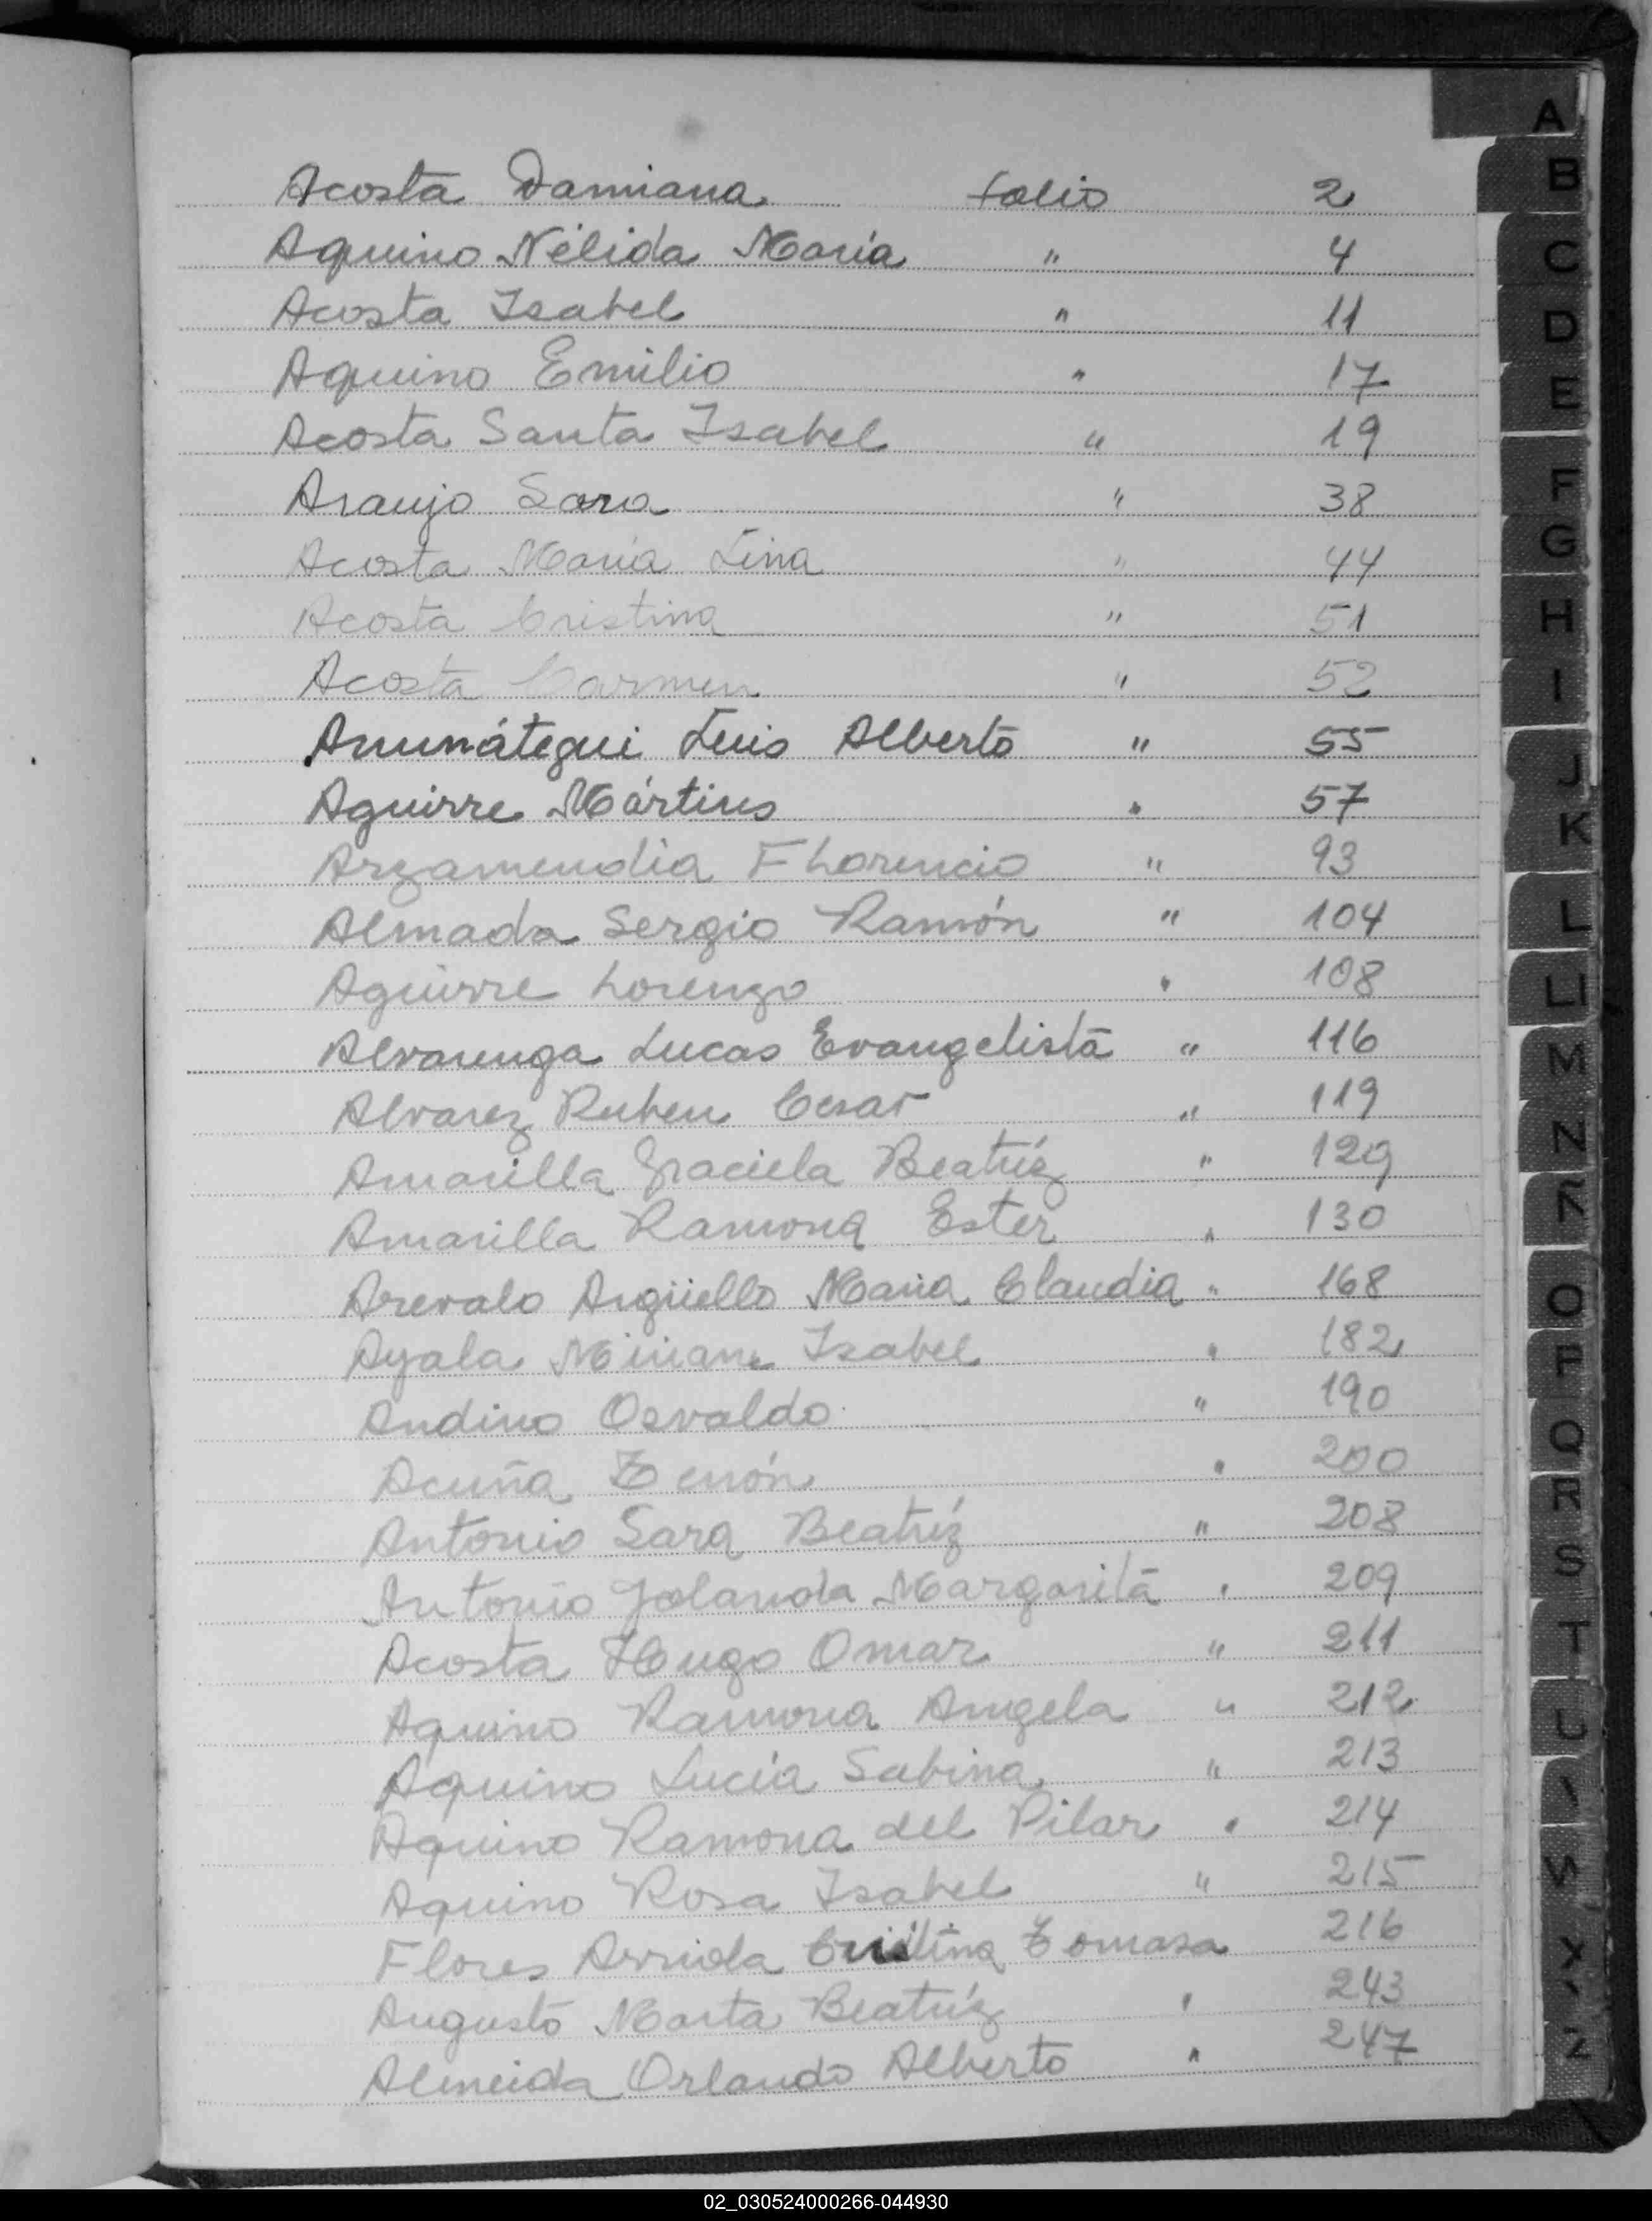 Acosta Damiana folio 2
Aquino Nélida María " 4
Acosta Isabel " 11
Aquino Emilio " 17
Acosta Santa Isabel " 19
Araujo Sara " 38
Acosta María Lina " 44
Acosta Cristina " 51
Acosta Carmen " 52
Amunátegui Luis Alberto " 55
Aguirre Mártires " 57
Arzamendia Florencio " 93
Almada Sergio Ramón " 104
Aguirre Lorenzo " 108
Alvarenga Lucas Evangelista " 116
Alvarez Ruben Cesar " 119
Amarilla Graciela Beatríz " 129
Amarilla Ramona Ester " 130
Arevalo Argüello Maria Claudia " 168
Ayala Miriam Isabel " 182
Andino Osvaldo " 190
Acuña Zenón " 200
Antonio Sara Beatríz " 208
Antonio Yolanda Margarita " 209
Acosta Hugo Omar " 211
Aquino Ramona Angela " 212
Aquino Lucía Sabina " 213
Aquino Ramona del Pilar " 214
Aquino Rosa Isabel " 215
Flores Arriola Cristina Tomasa 216
Augusto Marta Beatríz " 243
Almeida Orlando Alberto " 247
A
B
C
D
E
F
G
H
I
J
K
L
LL
M
N
Ñ
O
P
Q
R
S
T
U
Z
02_030524000266-044930